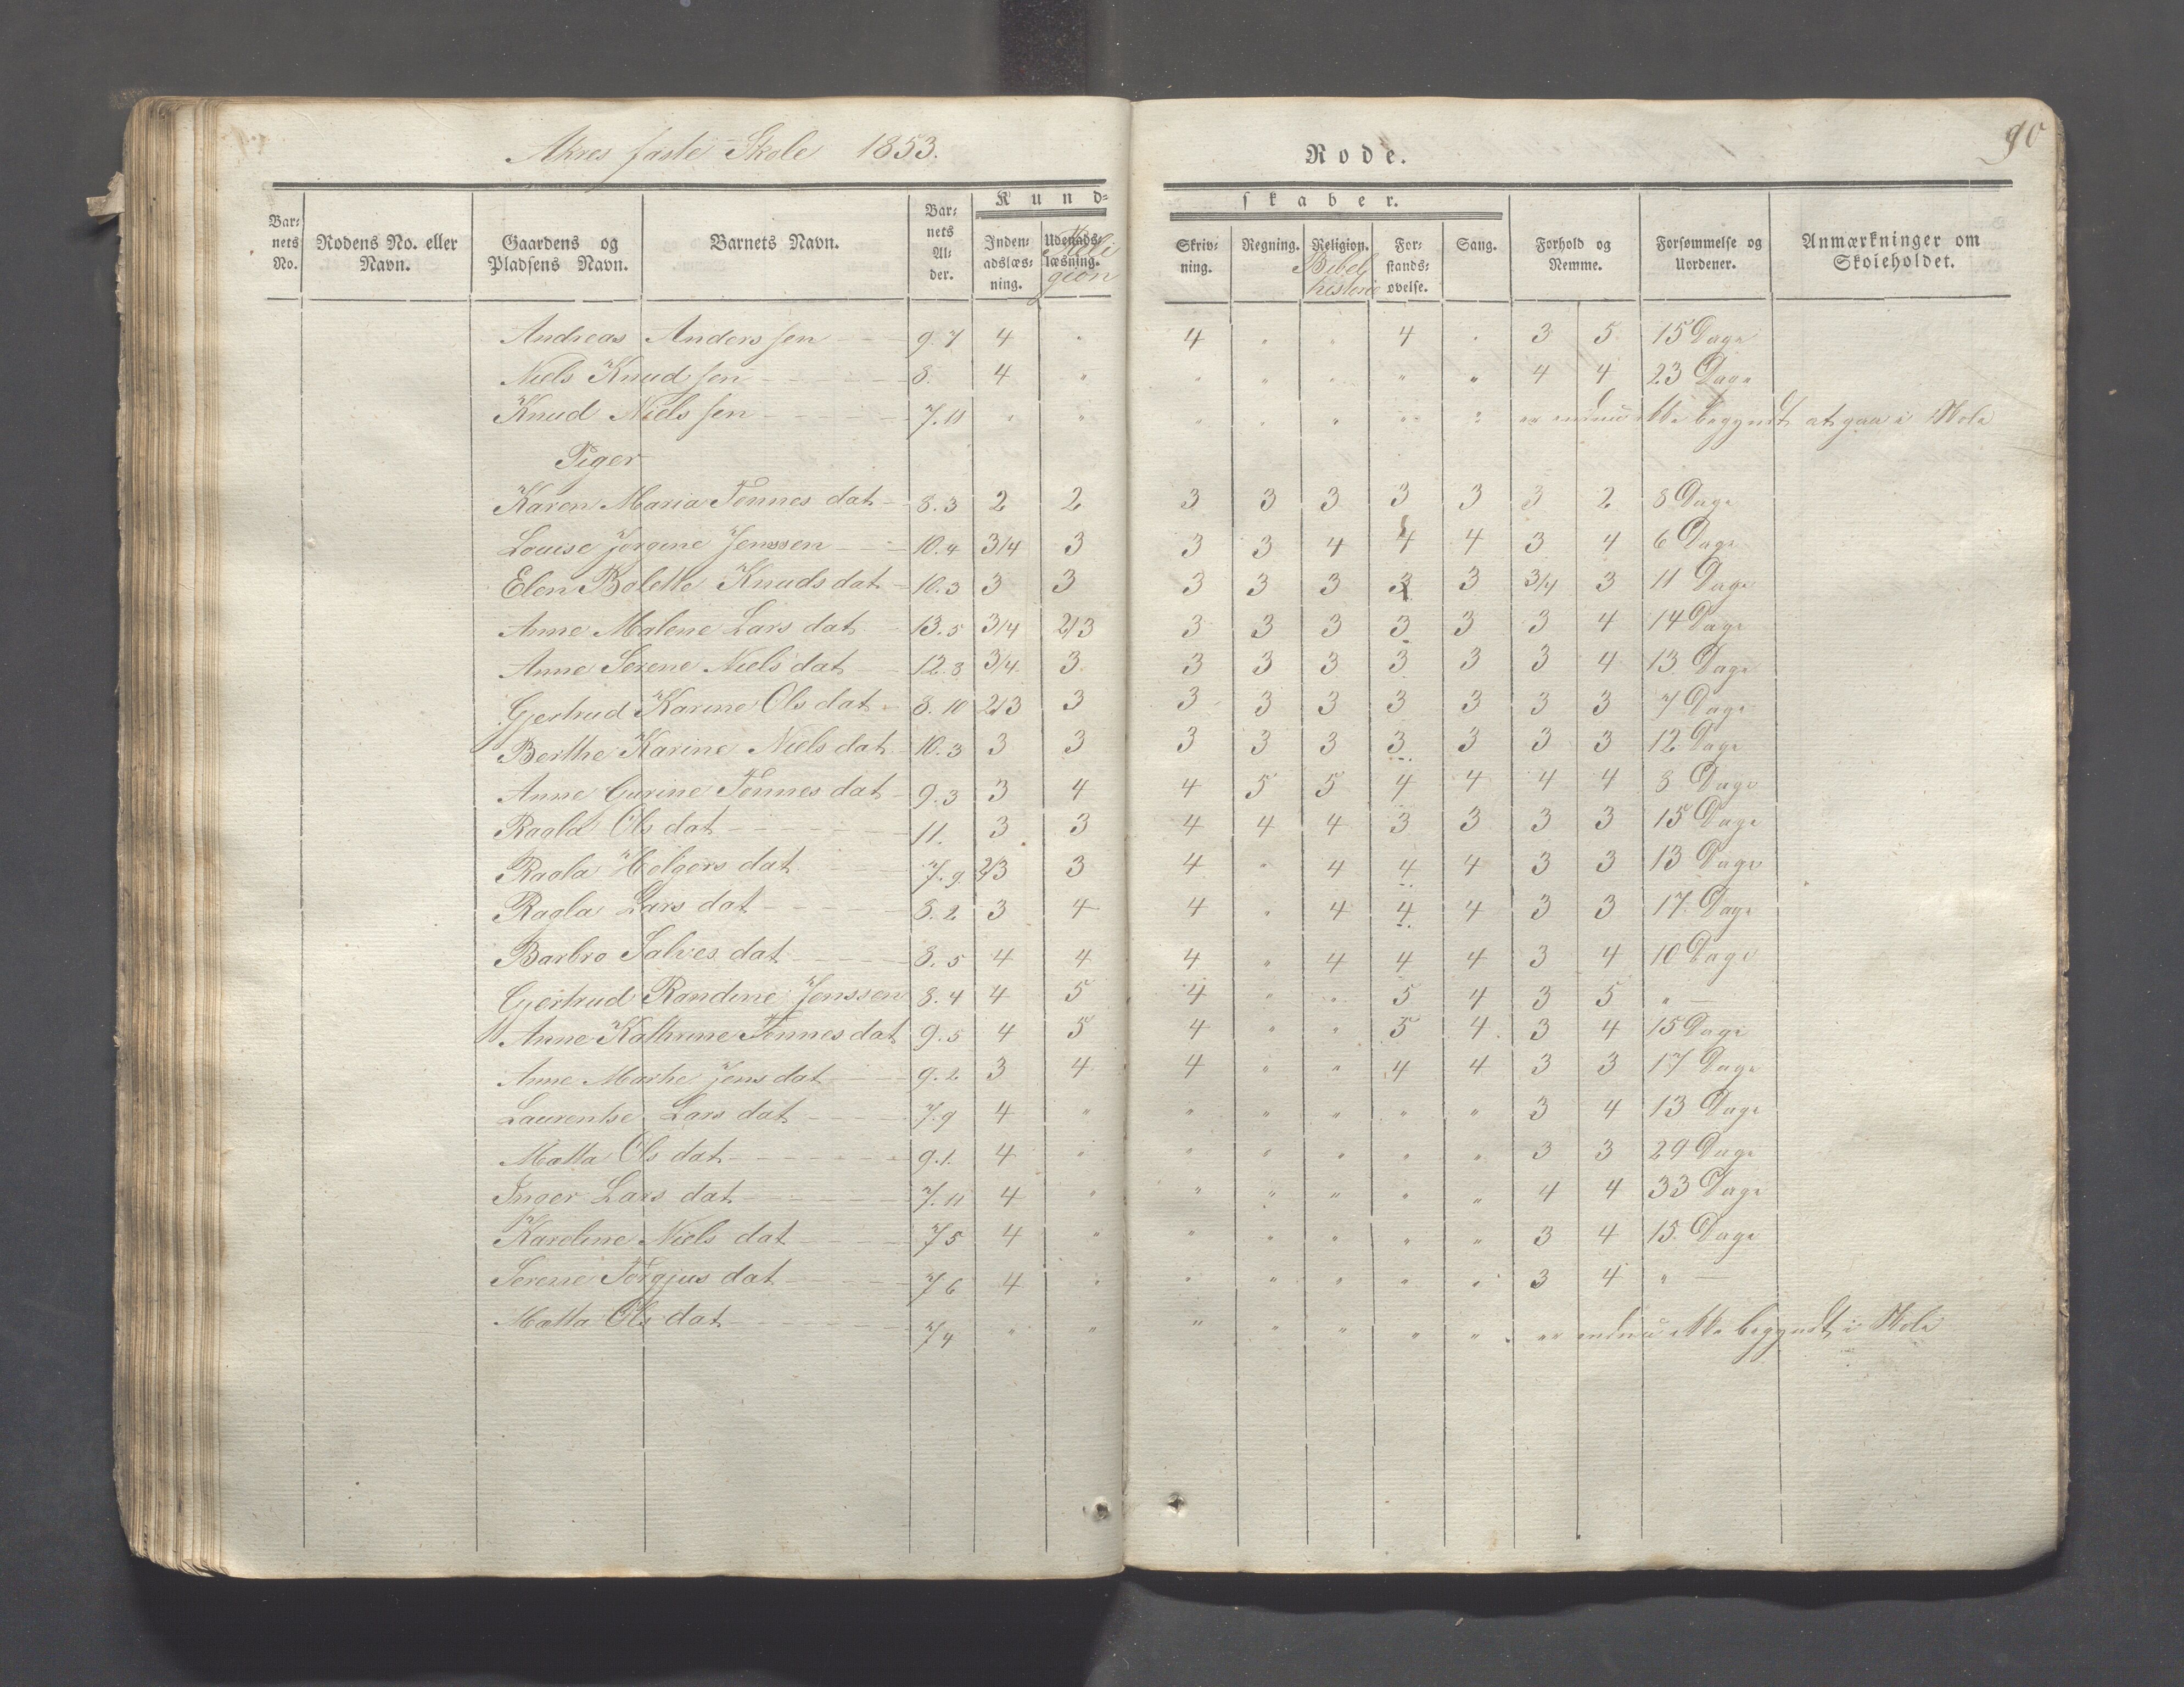 Akres faste Skole 1853.
Rode.
90
Bar-nets No.
Rodens No. eller Navn.
Gaardens og Pladsens Navn.
Barnets Navn.
Bar-nets Al-der.
Kund-skaber.
Inden-adslæs-ning.
Udenads-læsning. Religion
Skriv-ning.
Regning.
Religion. Bibelhistorie
For-stands-øvelse.
Sang.
Forhold og Nemme.
Forsømmelse og Uordener.
Anmærkninger om Skoleholdet.
Andreas Anderssen 9.7 4 " 4 " " 4 " 3 5 15 Dage
Niels Knudsen 8. 4 " " " " " " 4 4 23 Dage
Knud Nielssen 7.11 " " " " " " " er endnu ikke begyndt at gaa i Skole
Piger
Karen Maria Tønnesdat 8.3 2 2 3 3 3 3 3 3 2 8 Dage
Louise Jørgine Jenssen 10.4 3/4 3 3 3 4 4 4 3 4 6 Dage
Elen Bolette Knudsdat 10.3 3 3 3 3 3 3 3 3/4 3 11 Dage
Anne Malene Larsdat 13.5 3/4 2/3 3 3 3 3 3 3 4 14 Dage
Anne Serene Nielsdat 12.8 3/4 3 3 3 3 3 3 3 4 13 Dage
Gjertrud Karine Olsdat 8.10 2/3 3 3 3 3 3 3 3 3 7 Dage
Berthe Karine Nielsdat 10.3 3 3 3 3 3 3 3 3 3 12 Dage
Anne Gurine Tønnesdat 9.3 3 4 4 5 5 4 4 4 4 8 Dage
Ragla Olsdat 11. 3 3 4 4 4 3 3 3 3 15 Dage
Ragla Holgersdat 7.9 2/3 3 4 " 4 4 4 3 3 13 Dage
Ragla Larsdat 8.2 3 4 4 " 4 4 4 3 3 17 Dage
Barbro Salvesdat 8.5 4 4 4 " 4 4 4 3 4 10 Dage
Gjertrud Randine Jenssen 8.4 4 5 4 " " 5 4 3 5 " —
Anne Kathrine Tønnesdat 9.5 4 5 4 " " 5 4 3 4 15 Dage
Anne Marthe Jensdat 9.2 3 4 4 " " 4 4 3 3 17 Dage
Laurentse Larsdat 7.9 4 " " " " " " 3 4 13 Dage
Matta Olsdat 9.1. 4 " " " " " " 3 3 29 Dage
Inger Larsdat 7.11 4 " " " " " " 4 4 33 Dage
Karoline Nielsdat 7 5 4 " " " " " " 3 4 15 Dage
Serene Torgjusdat 7 6 4 " " " " " " 3 4 " —
Matta Olsdat 7 4 " " " " " " " er endnu ikke begyndt i Skole